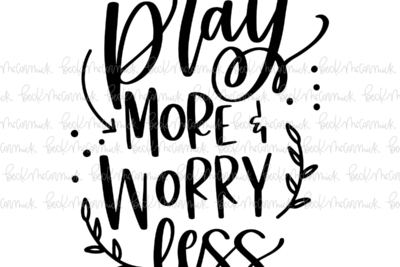 pray
MORE &
WORRY
less